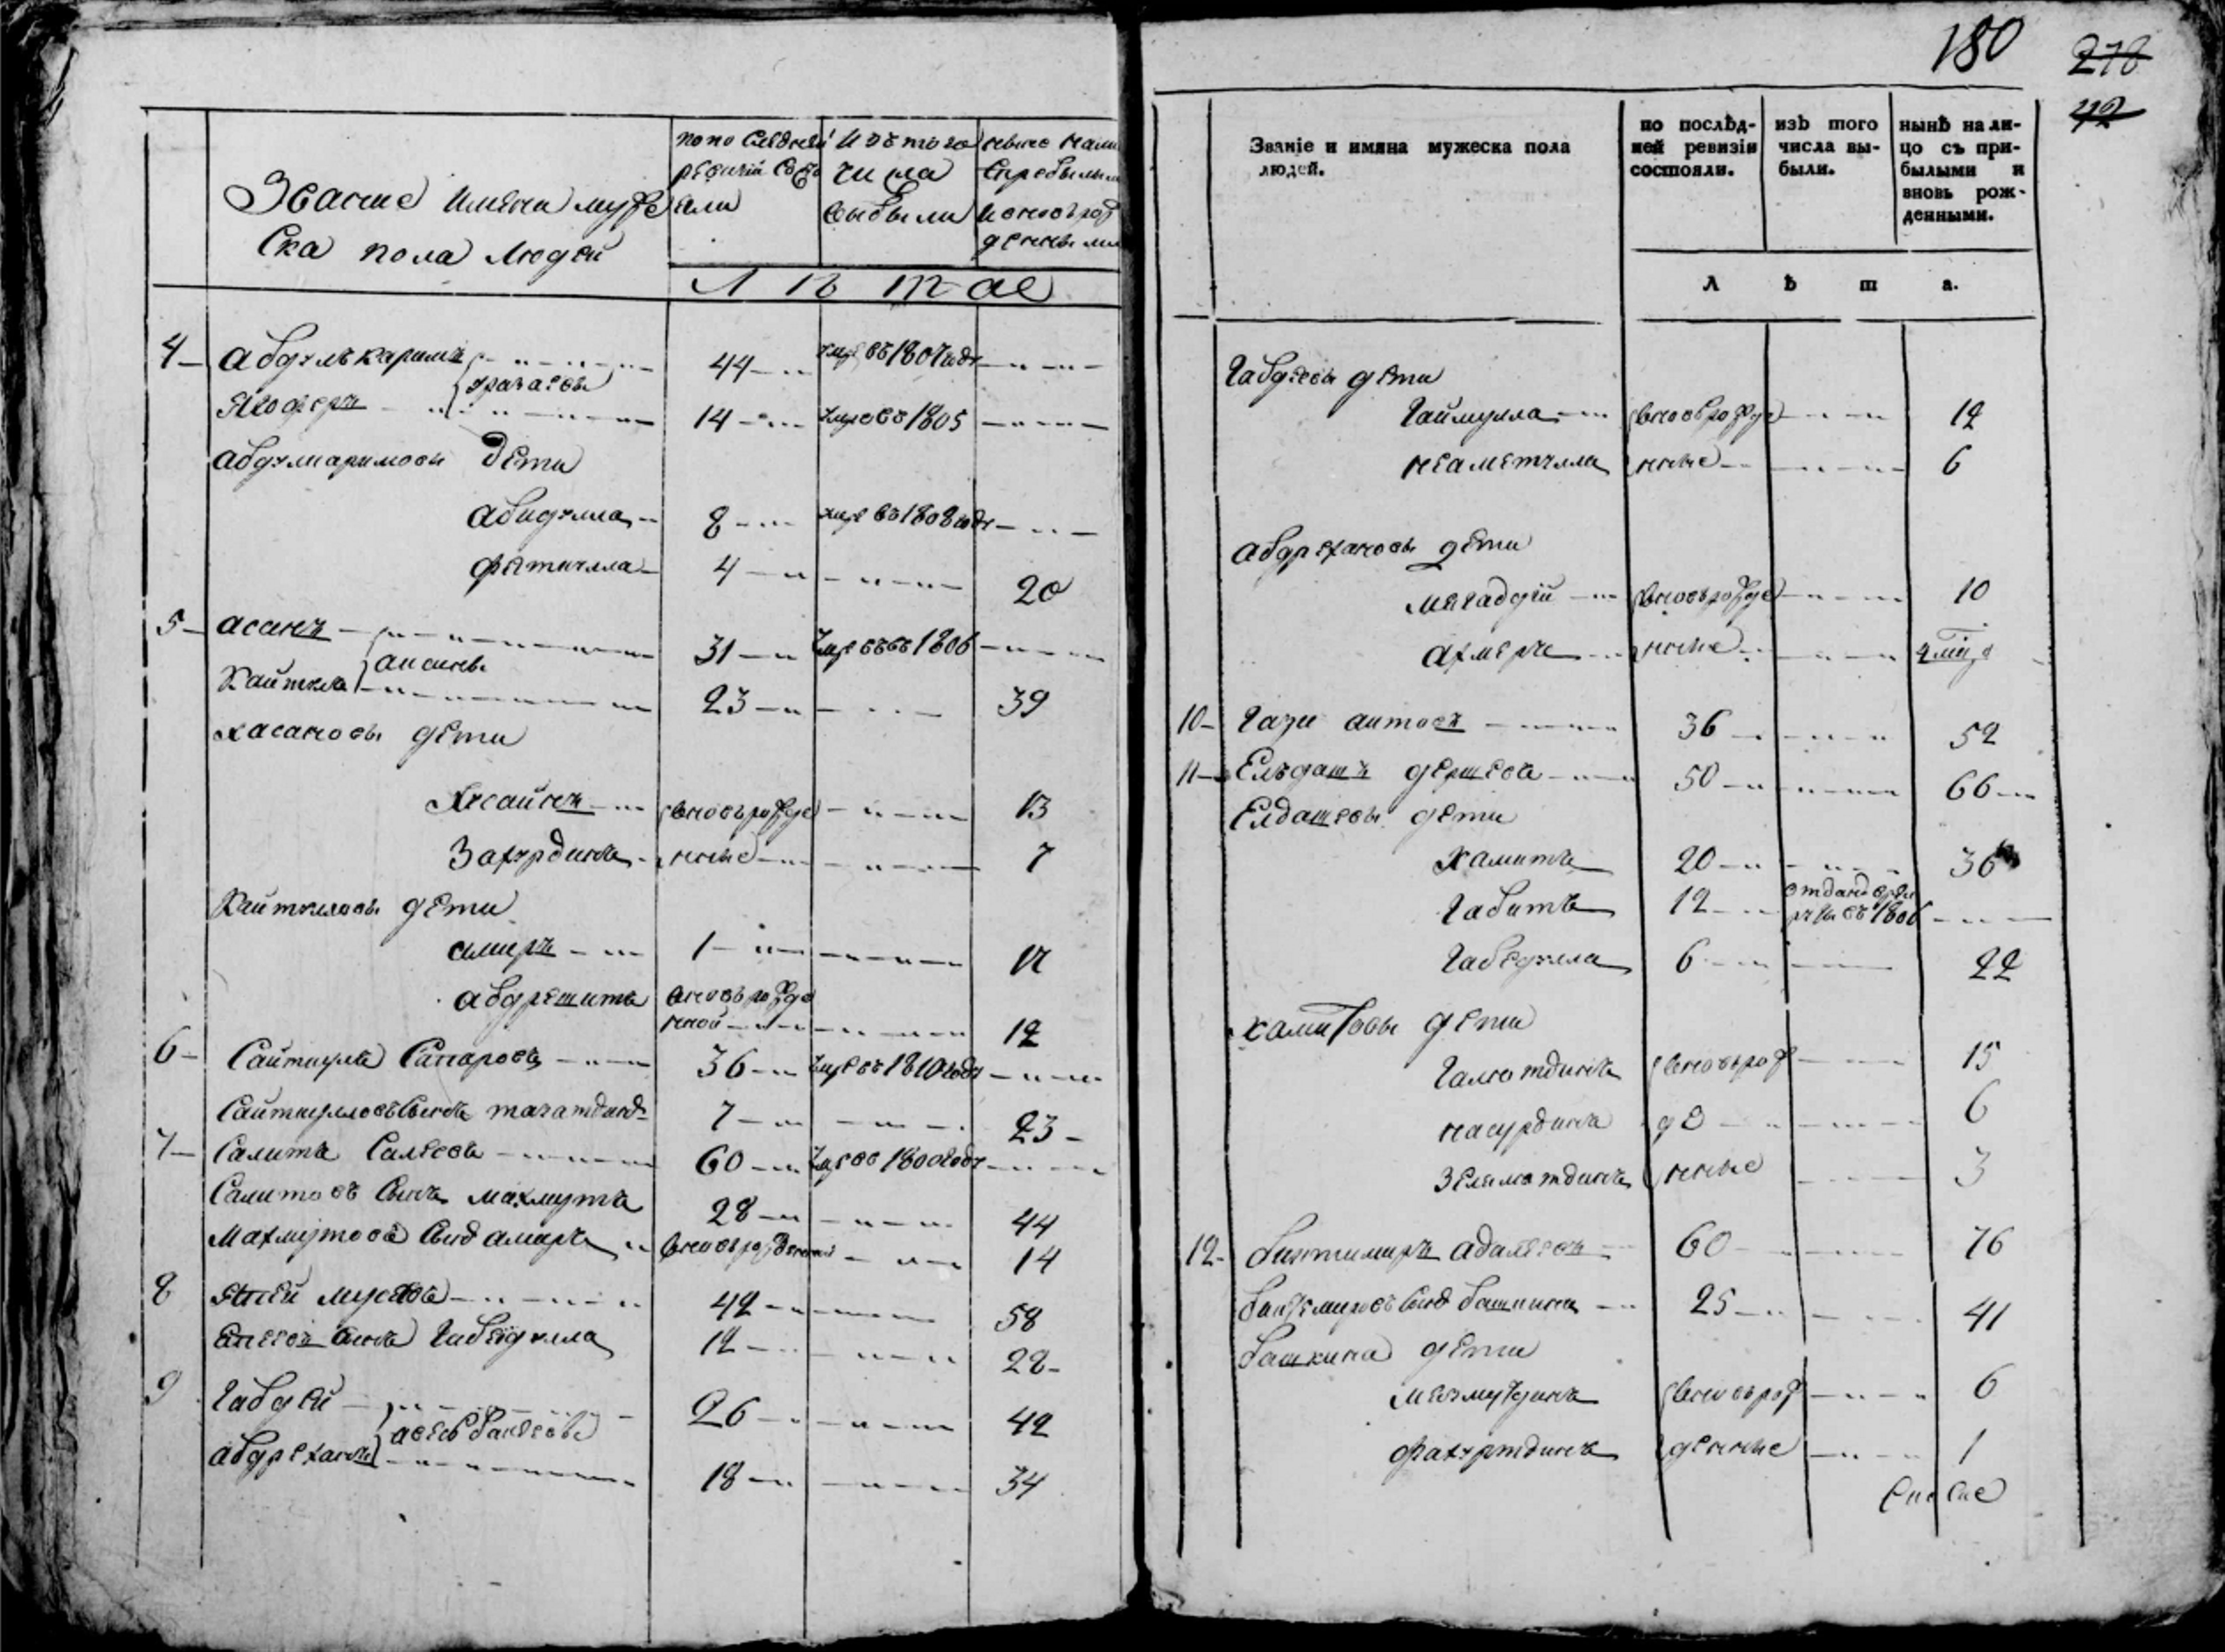 Звание имяна муже
ска пола людей
попоследней ревизии состояли
изъ того числа выбыли
ныне нали
с прибылыми
и вновьрож
денными
Л ѣ т а
4 — Абдулъкаримъ 44 умре въ 1807 годе
Уразаевы
Якоферъ 14 умре въ 1805
Абдулкаримовы дети
Абидулла 8 умре въ 1808 годе
Фяткулла 4 20
5 — Асанъ 31 умре въ 1806
Каиткула 23 39
Хасановы дети
Хусаинъ вновьрожде 13
Захурдинъ нные 7
Каиткуловы дети
Амиръ 1 17
Абдрешитъ вновьрожде
нной 12
6 — Саиткулъ Сапаровъ 36 умре въ 1810 годе
Саиткуловъ сынъ 7 23
7 — Салитъ Салѣевъ 60 умре въ 1800 годе
Салитовъ сынъ Махмутъ 28 44
Махмутовъ сынъ Амиръ вновьрожденной 14
8 Япѣй Мусѣевъ 42 58
Епѣевъ сынъ Габѣйдулла 12 28
9 Габдѣй 26 42
Абдреханъ 18 34
180
278
42
Званіе и имяна мужеска пола
людей.
по послѣд-
ней ревизіи
состояли.
изъ того
числа вы-
были.
нынѣ нали-
цо съ при-
былыми и
вновь рож-
денными.
Л ѣ т а.
Габдѣевы дети
Гаймулла вновьрожде 12
Неаметулла нные 6
Абдрехановы дети
Мягадѣй вновьрожде 10
Ахмеръ нные
10 — Гази Аитовъ 36 52
11 — Елъдашъ Дершевъ 50 66
Елдашевы дети
Хамитъ 20 36
Габитъ 12 отданъ въ рек
руты въ 1806
Габѣдулла 6 22
Хамитовы дети
Галютдинъ вновьрож 15
Насурдинъ де 6
Зелялютдинъ нные 3
12 — Биктимиръ Адалѣевъ 60 76
Биктемировъ сынъ Башкинъ 25 41
Башкина дети
вновьрож 6
Фахуртдинъ денные 1